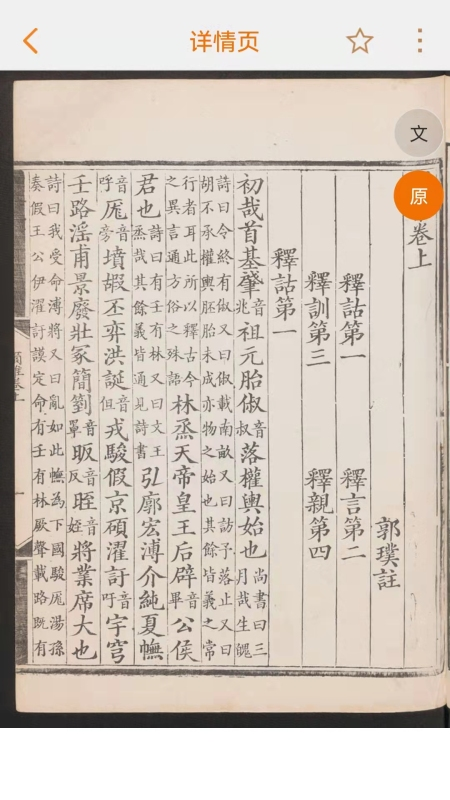 详情页
文
原
卷上
郭璞註
釋詁第一 釋言第二
釋訓第三 釋親第四
釋詁第一
初哉首基肇音兆祖元胎俶音叔落權輿始也尚書曰三月哉生魄
詩曰令終有俶又曰俶載南畝又曰訪予落止又曰
胡不承權輿胚胎未成亦物之始也其餘皆義之常
行者耳此所以釋古今之異言通方俗之殊語林烝天帝皇王后辟音畢公侯
君也詩曰有壬有林又曰文王烝哉其餘義皆通見詩書弘廓宏溥介純夏幠
音呼厖音旁墳嘏丕弈洪誕音但戎駿假京碩濯訏音吁宇穹
壬路淫甫景廢壯冢簡箌音罩昄音反晊音姪將業席大也
詩曰我受命溥將又曰亂如此幠為下國駿厖湯孫
奏假王公伊濯訏謨定命有壬有林厥聲載路既有
爾雅卷上